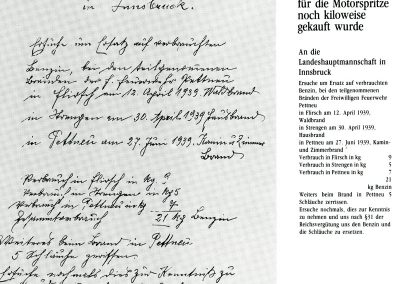 in Innsbruck.
Ersuche um Ersatz auf verbrauchten
Benzin, bei den teilgenommenen
Bränden der f. Feuerwehr Pettneu
in Flirsch am 12. April 1939. Waldbrand
in Strengen am 30. April 1939 Hausbrand
in Pettneu am 27 Juni 1939. Kamin u Zimmer
Brand
Verbrauch in Flirsch in kg 9
Verbrauch in Strengen in kg 5
Verbrauch in Pettneu in kg 7
Gesamtverbrauch 21 kg Benzin
Weiteres beim Brand in Pettneu
5 Schläuche zerissen.
Ersuche nochmals dies zur Kenntniß zu
für die Motorspritze
noch kiloweise
gekauft wurde
An die
Landeshauptmannschaft in
Innsbruck
Ersuche um Ersatz auf verbrauchten
Benzin, bei den teilgenommenen
Bränden der Freiwilligen Feuerwehr
Petneu
in Flirsch am 12 April 1939,
Waldbrand
in Strengen am 30. April 1939,
Hausbrand
in Petneu am 27. Juni 1939, Kamin-
und Zimmerbrand
Verbrauch in Flirsch in kg 9
Verbrauch in Strengen in kg 5
Verbrauch in Petneu in kg 7
21
kg Benzin
Weiters beim Brand in Petneu 5
Schläuche zerrissen.
Ersuche nochmals, dies zur Kenntnis
zu nehmen und uns nach §31 der
Reichsvergütung uns den Benzin und
die Schläuche zu ersetzen.